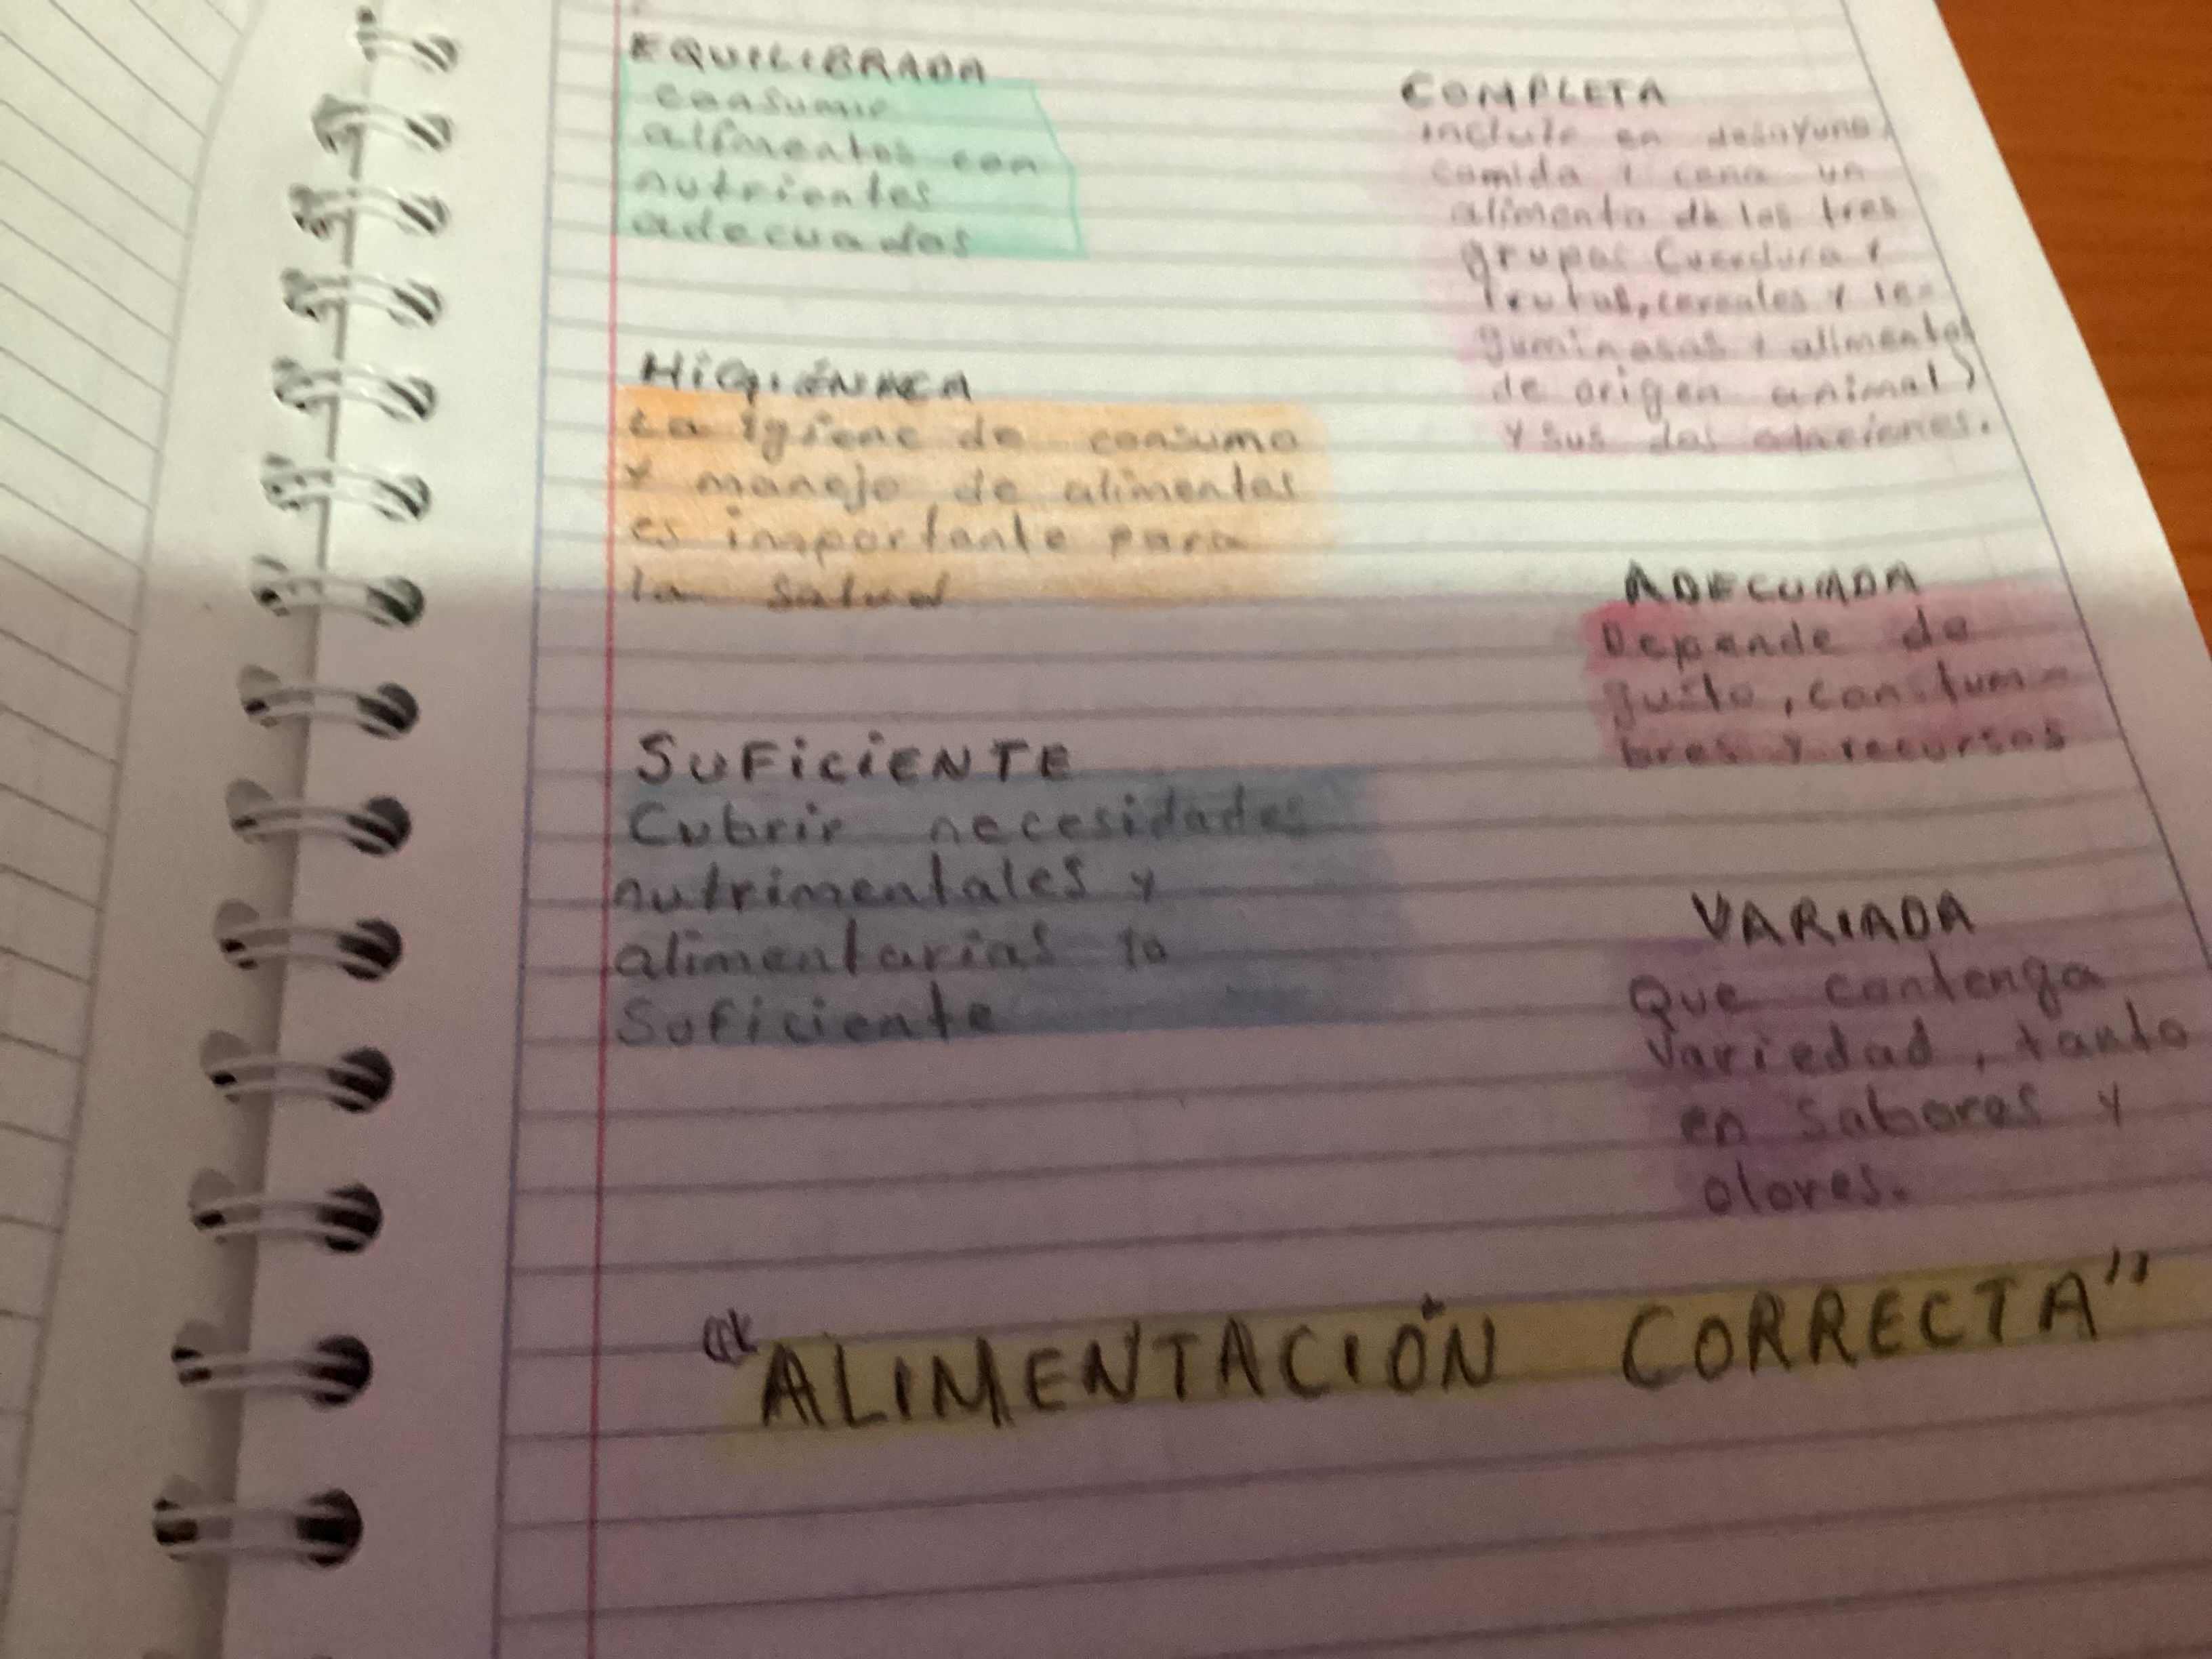 EQUILIBRADA
consumir
alimentos con
nutrientes
adecuados
HiGiÉNICA
La igiene de consumo
y manejo de alimentos
es importante para
la salud
SUFiCiENTE
Cubrir necesidades
nutrimentales y
alimentarias lo
Suficiente
COMPLETA
incluir en desayuno,
comida y cena un
alimento de los tres
grupos (verdura y
frutas, cereales y le-
guminosas y alimentos
de origen animal)
y sus dos
ADECUADA
Depende de
gusto, constum-
bres y recursos
VARIADA
Que contenga
Variedad, tanto
en sabores y
olores.
"ALIMENTACIÓN CORRECTA"